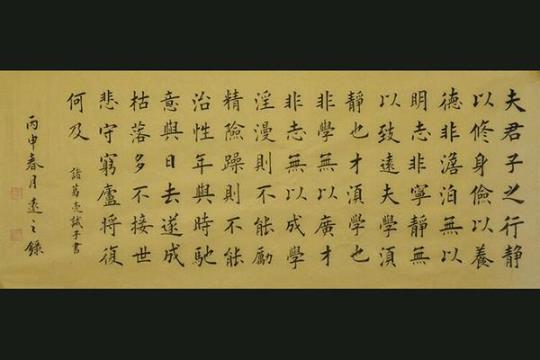 夫君子之行靜
以修身儉以養
德非澹泊無以
明志非寧靜無
以致遠夫學湏
靜也才湏學也
非學無以廣才
非志無以成學
淫漫則不能勵
精險躁則不能
治性年與時馳
意與日去遂成
枯落多不接世
悲守窮廬將復
何及
諸葛亮誡子書
丙申春月之錄